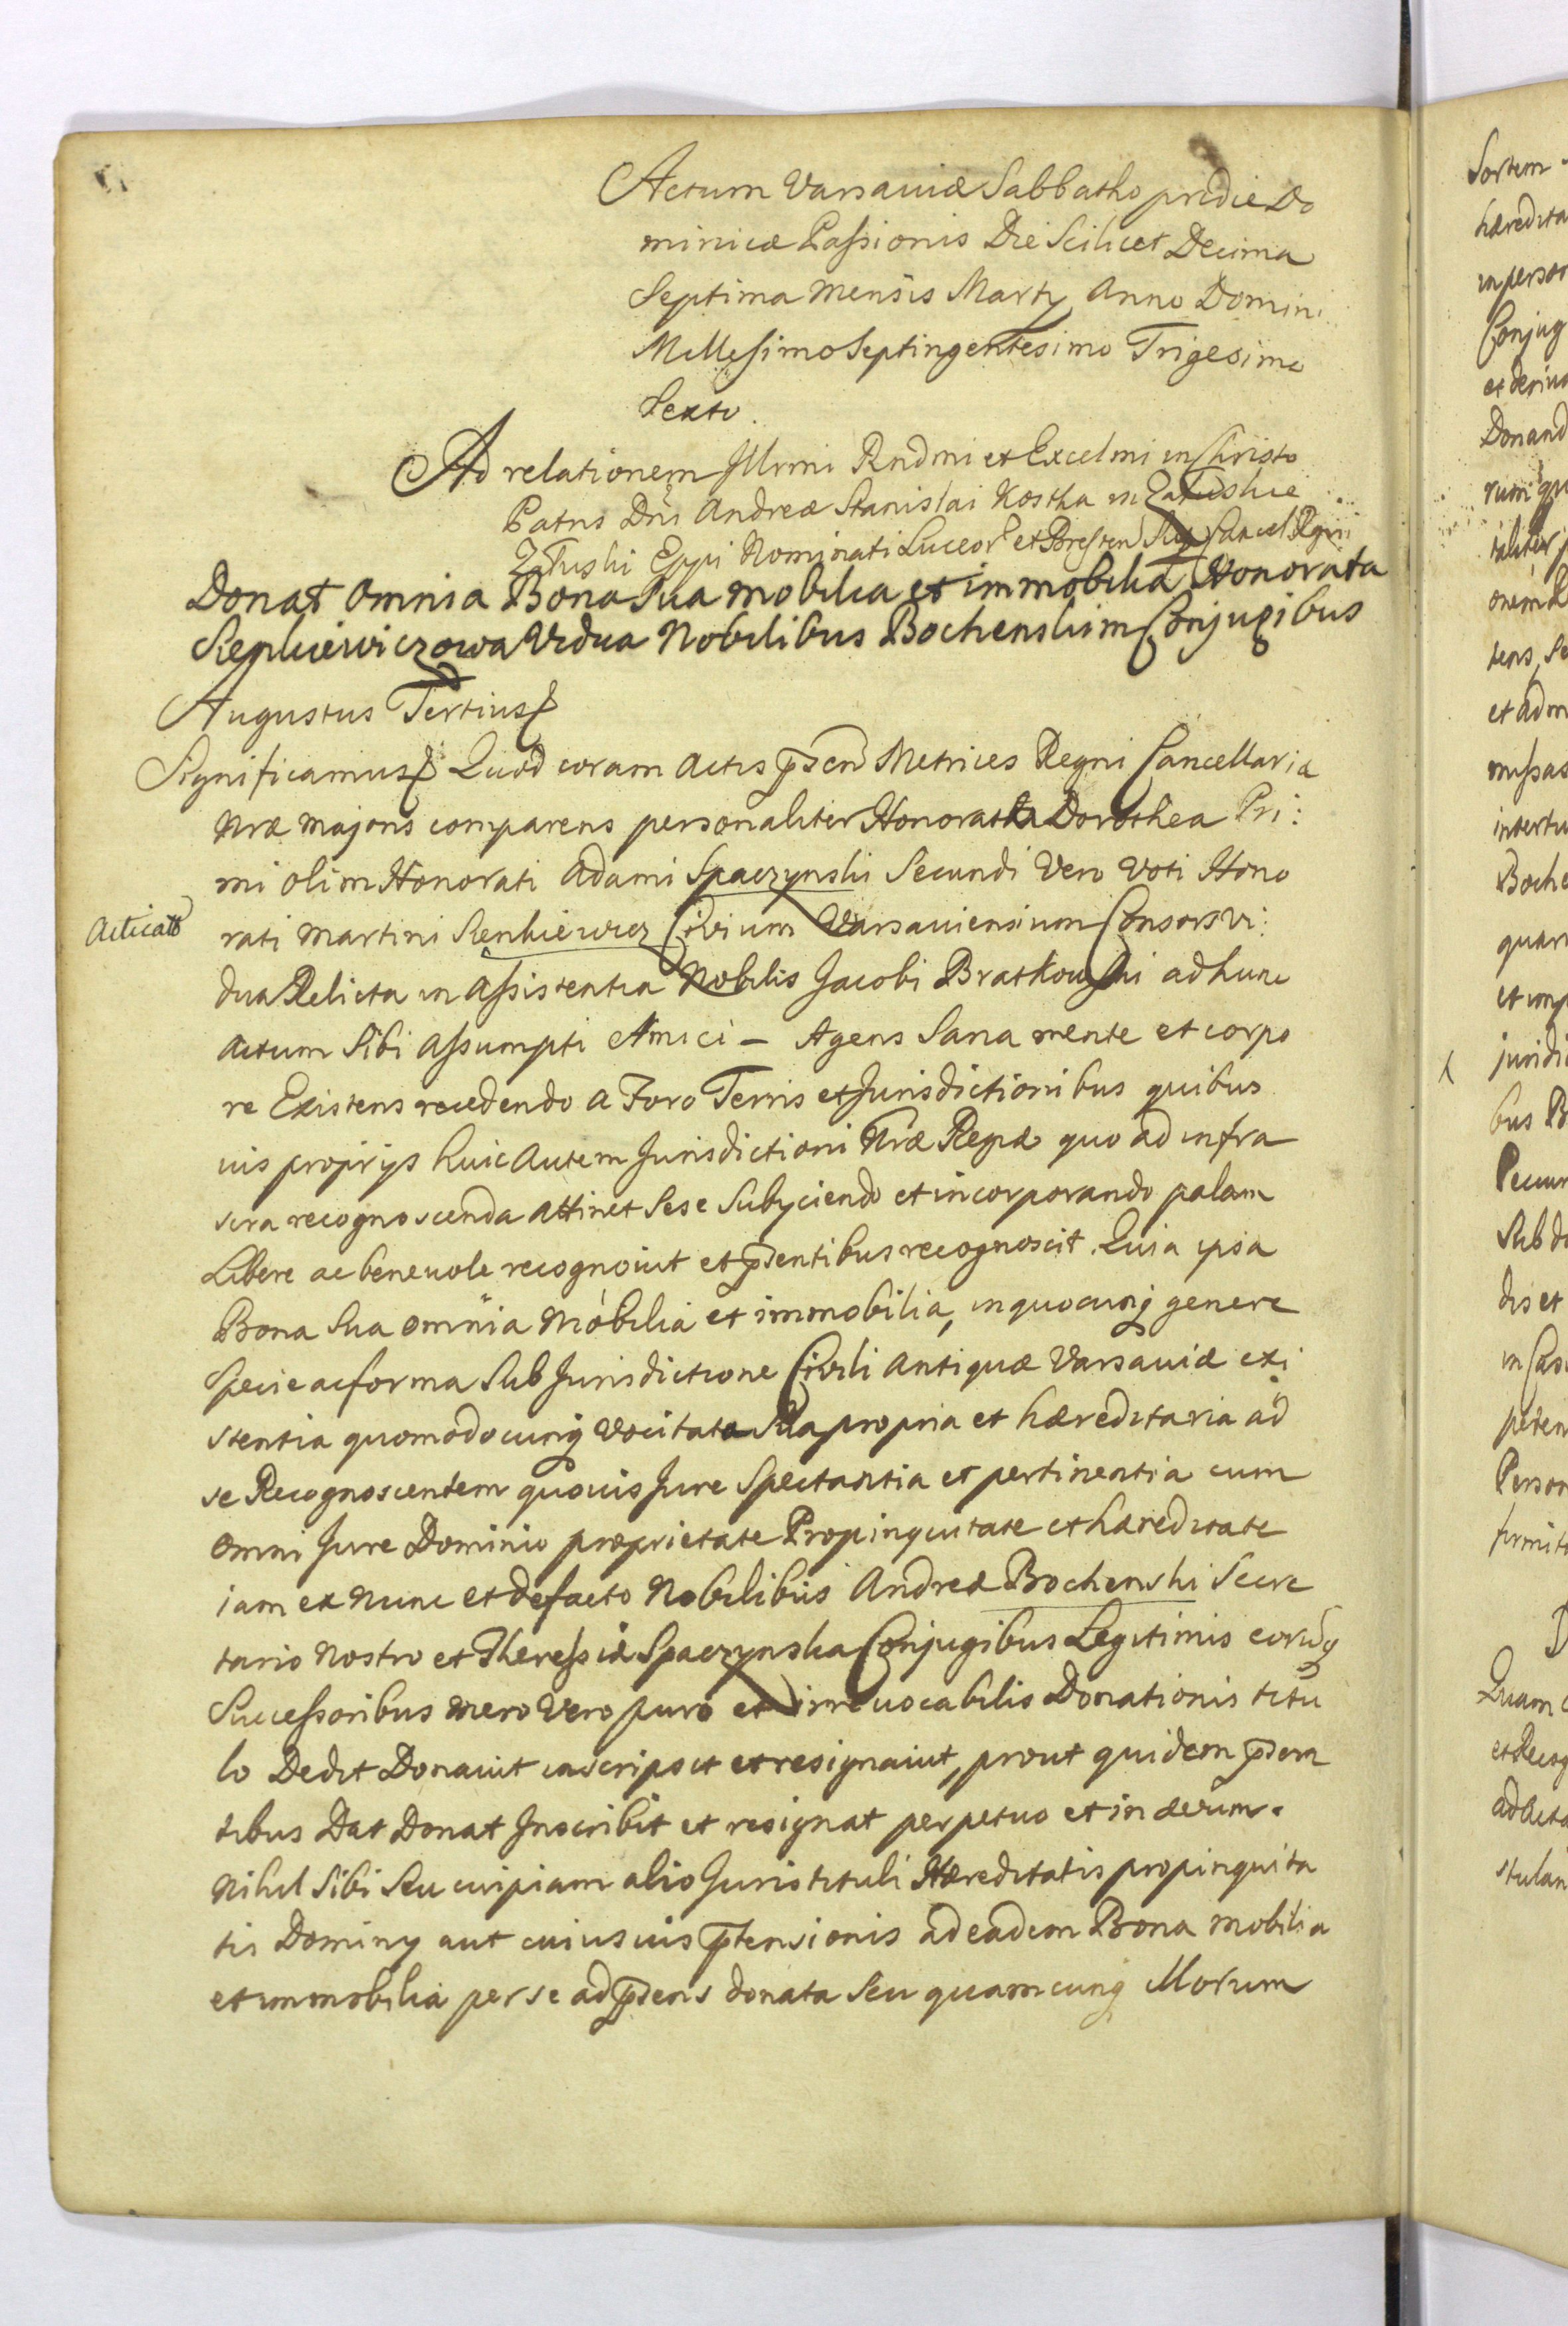 Actum Varsaviæ Sabbatho pridie Do
minicæ Passionis Die Scilicet Decima
Septima Mensis Martÿ Anno Domini
Millesimo Septingentesimo Trigesimo
Sexto.
Ad relationem Illrmi Rndmi et Excelmi in Christo
Patris Dni Andreæ Stanislai Kostka in Załuskie
Załuski Eppi Nominati Luceor et Bresten Sup Cancel Regni
Donat Omnia Bona Sua mobilia et immobilia Honorata
Senkiewiczowa Vidua Nobilibus Bochenskim Conjugibus
Augustus Tertius
Significamus Quod coram Actis pñsen Metrices Regni Cancellaria
Nræ Majoris comparens personaliter Honorata Dorothea Pri:
mi olim Honorati Adami Spaczynski Secundi Vero Voti Hono
Acticatõ
rati Martini Senkiewicz Civium Varsaviensium Consors Vi:
dua Relicta in Assistentia Nobilis Jacobi Bratkowski ad hunc
Actum Sibi Assumpti Amici – Agens Sana mente et corpo
re Existens recedendo a Foro Terris et Jurisdictionibus quibus
vis proprÿs huic Autem Jurisdictioni Nræ Regiæ quo ad infra
scra recognoscenda attinet Sese Subÿciendo et incorporando palam
Libere ac benevole recognovit et pñsentibus recognoscit. Quia ipsa
Bona Sua omnia Mobilia et immobilia, in quocunq genere
Specie ac forma Sub Jurisdictione Civili Antiquæ Varsaviæ exi
stentia quomodocunq Vocitata Sua propria et hæreditaria ad
se Recognoscentem quovis Jure Spectantia et pertinentia cum
Omni Jure Dominio proprietate Propinquitate et hæreditate
iam ex Nunc et de facto Nobilibus Andreæ Bochenski Secre
tario Nostro et Theressiæ Spaczynska Conjugibus Legitimis eorumq
Successoribus mero Vero puro et irrevocabilis Donationis titu
lo Dedit Donavit inscripsit et resignavit, prout quidem pñsen
tibus Dat Donat Inscribit et resignat perpetuo et in ævum.
Nihil Sibi Seu cuipiam alio Juris tituli Hæreditatis propinquita
tis Dominÿ aut cuiusvis ptensionis ad eadem Bona mobilia
et immobilia per se ad pñsens donata Seu quamcunq Illorum